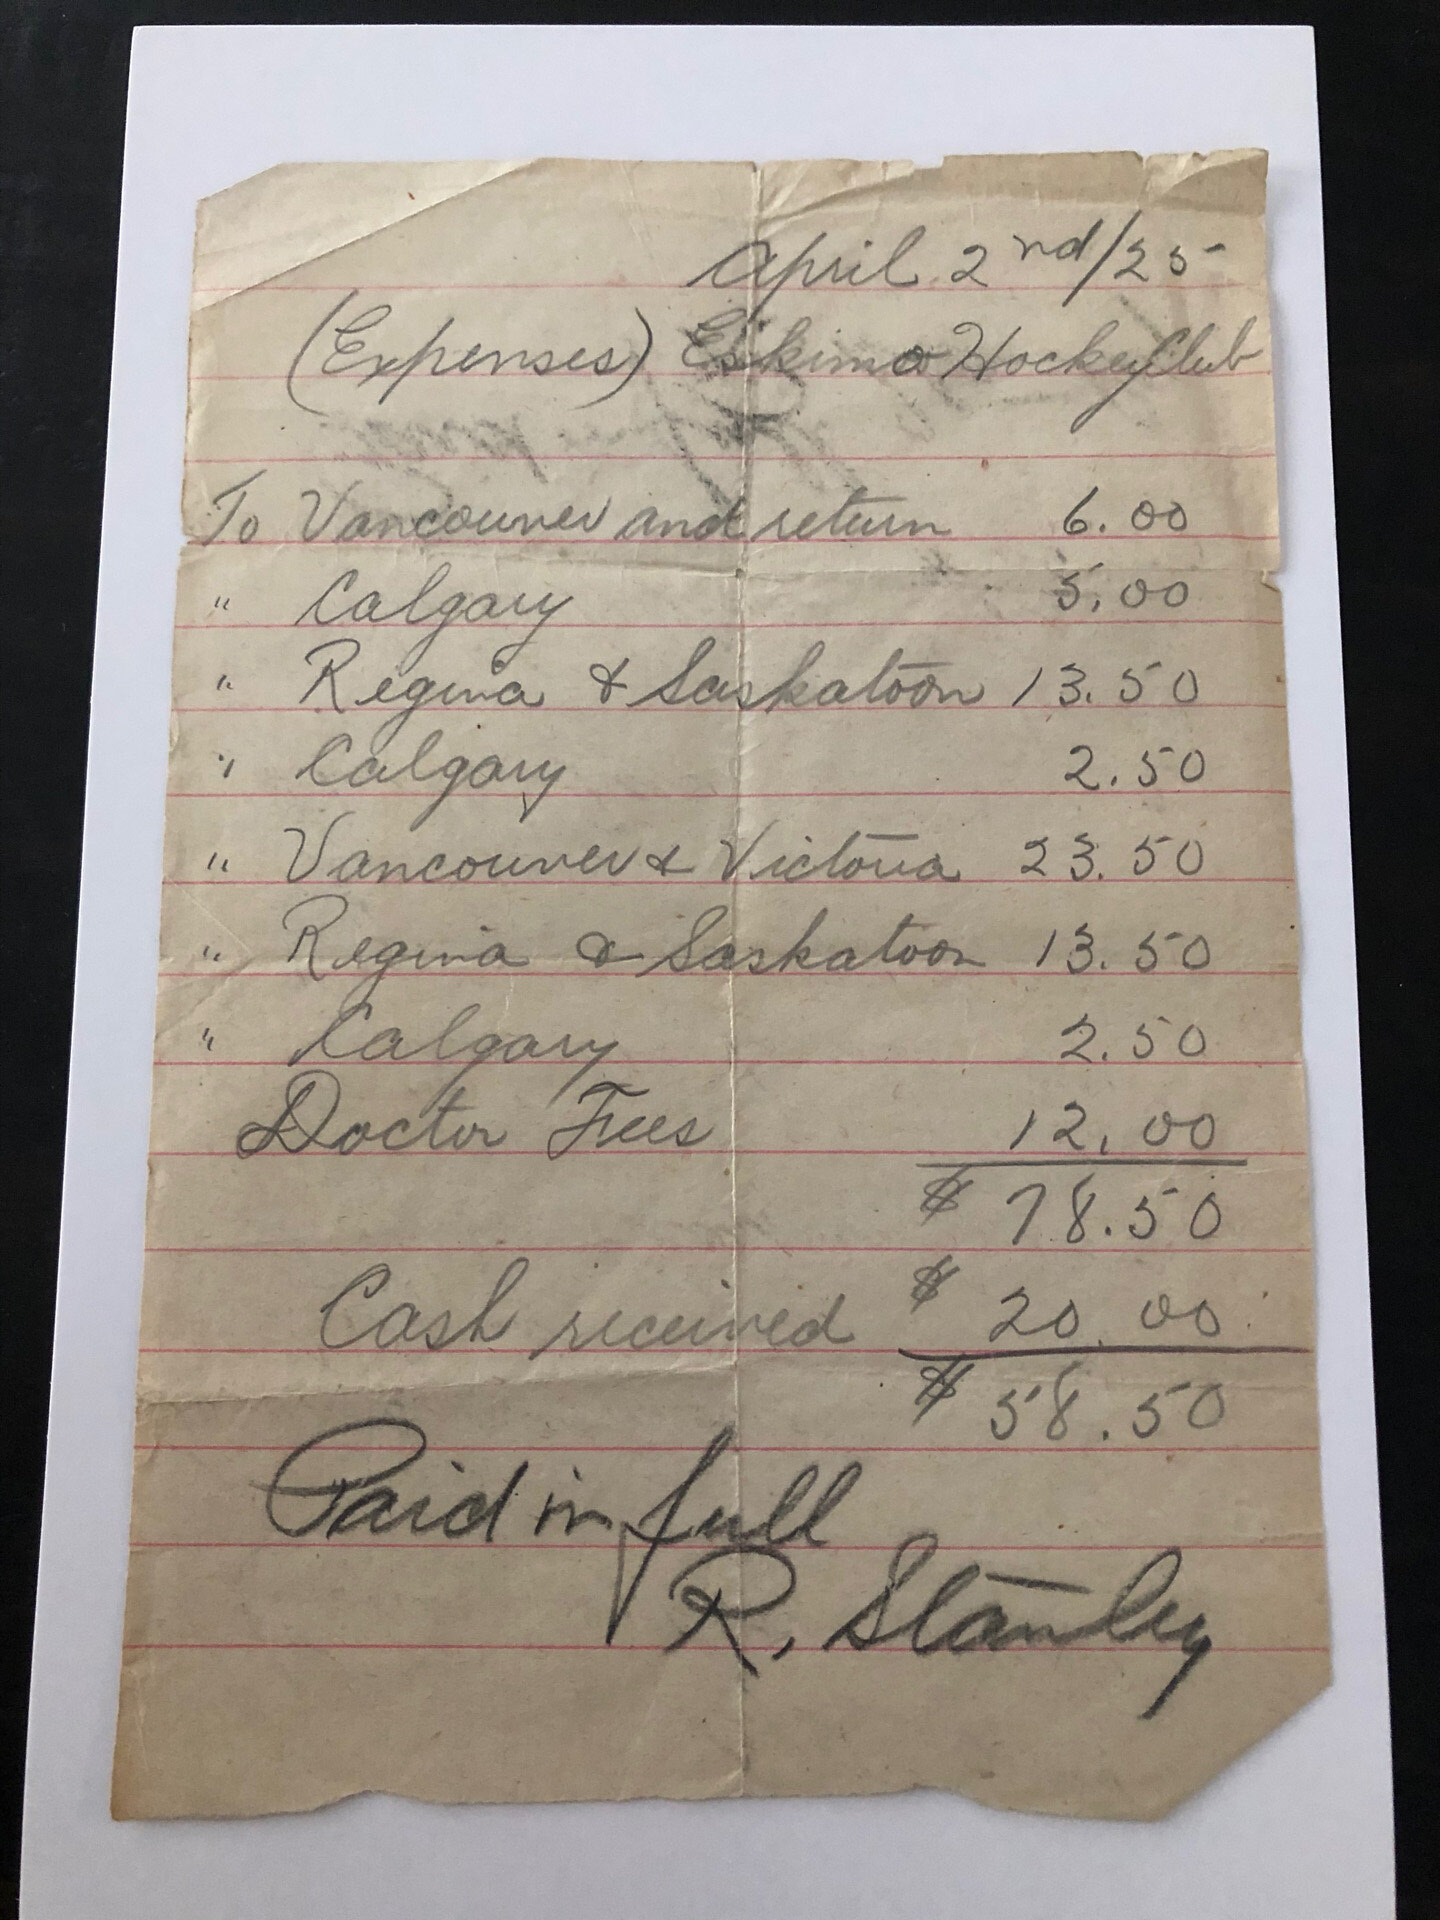 April 2nd/25
(Expenses) Eskimo Hockey Club
To Vancouver and return 6.00
" Calgary 5.00
" Regina & Saskatoon 13.50
" Calgary 2.50
" Vancouver & Victoria 23.50
" Regina & Saskatoon 13.50
" Calgary 2.50
Doctor Fees 12.00
$ 78.50
Cash received $ 20.00
$ 58.50
Paid in full
R. Stanley